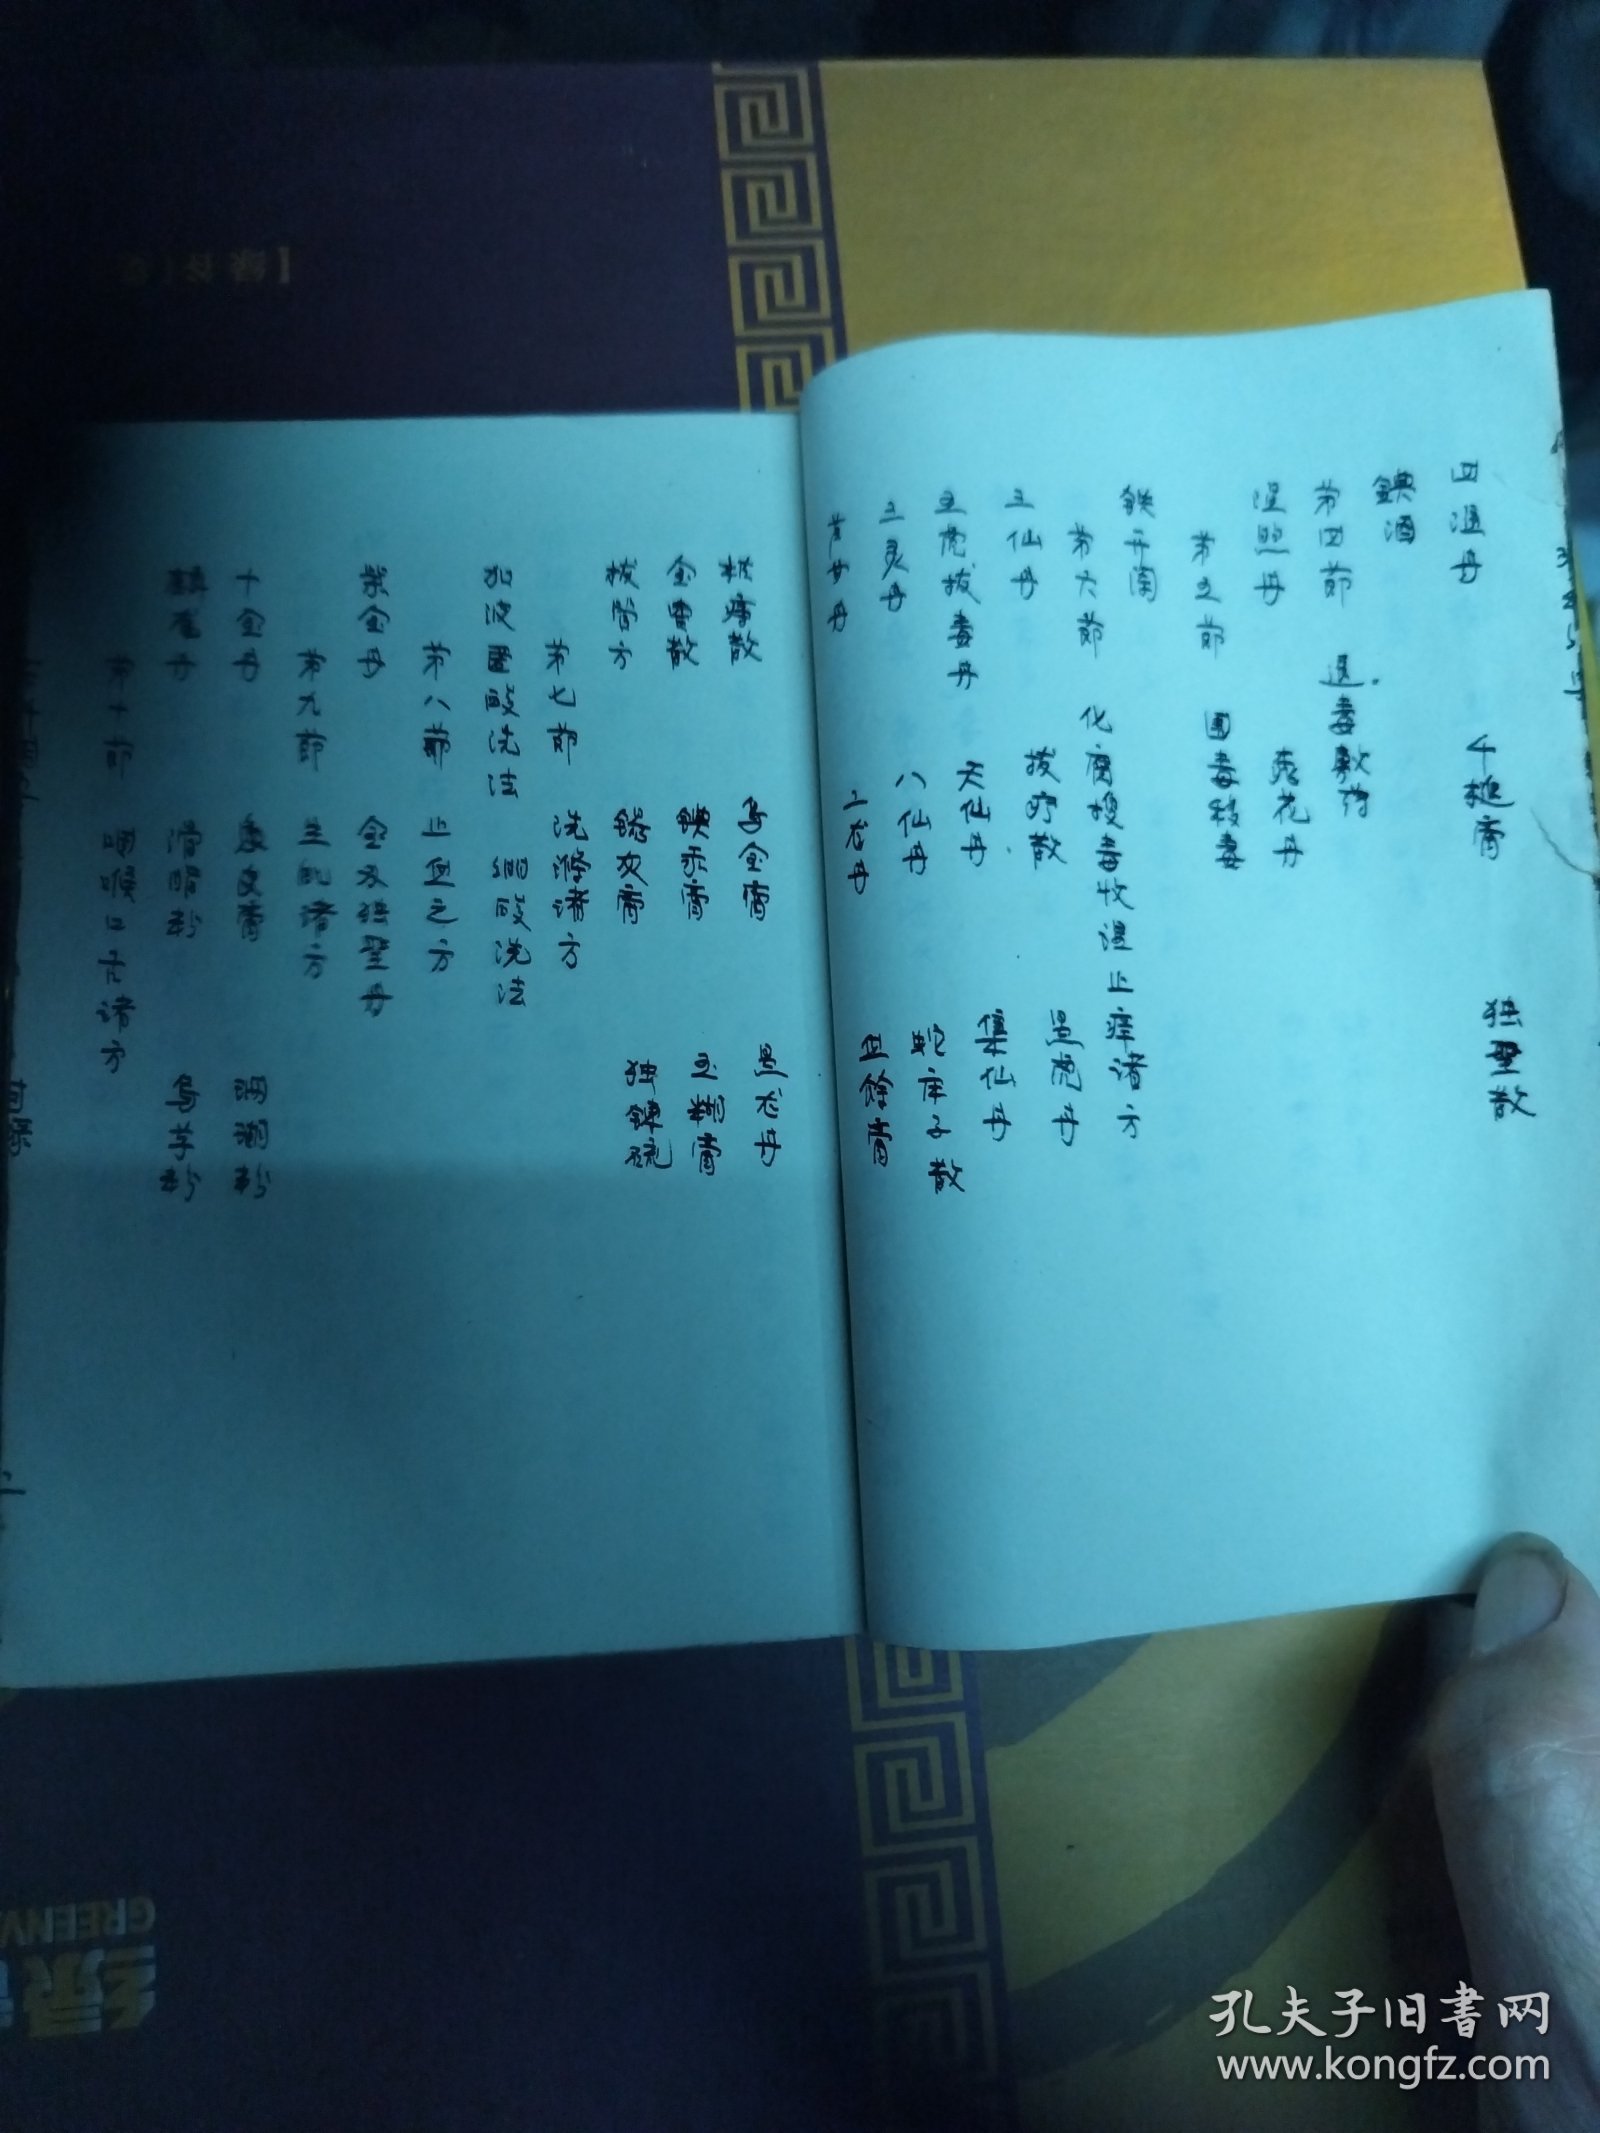 四温丹 千槌膏 独圣散
碘酒
第四节 退毒敷药
湿照丹 秃花丹
第五节 围毒移毒
铁井阑
第六节 化腐搜毒收湿止痒诸方
三仙丹 拔疔散 黑虎丹
五虎拔毒丹 天仙丹 集仙丹
三灵丹 八仙丹 蛇床子散
二龙丹 血馀膏
乌金膏 黑龙丹
金 散 碘汞膏 玉糊膏
拔管方 独 硫
第七节 洗涤诸方
加波匿酸洗法 硼酸洗法
第八节 止血之方
紫金丹 金刃独圣丹
第九节 生肌诸方
十全丹 象皮膏 珊瑚粉
麟龙丹 滑脂粉 乌芋粉
第十节 咽喉口舌诸方
孔夫子旧书网
www.kongfz.com